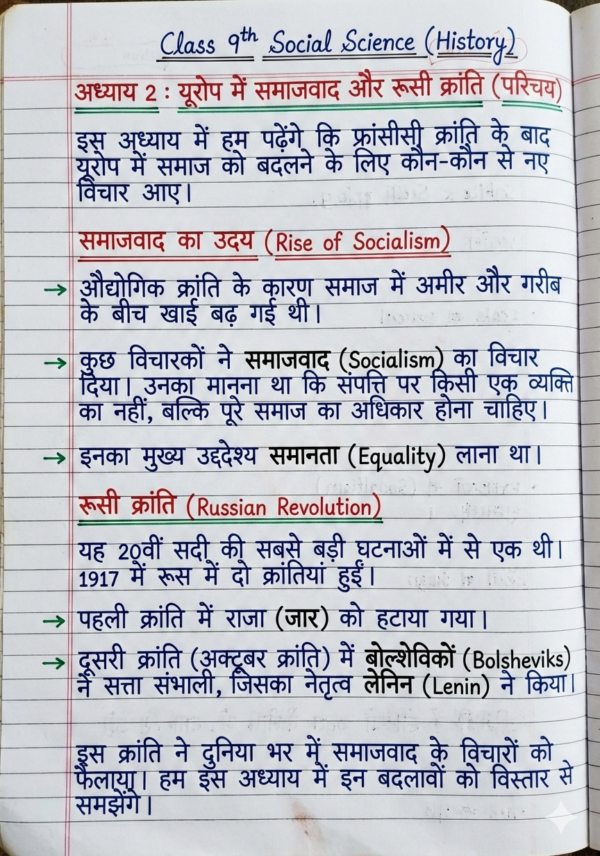 Class 9th Social Science (History)
अध्याय 2 : यूरोप में समाजवाद और रूसी क्रांति (परिचय)
इस अध्याय में हम पढ़ेंगे कि फ्रांसीसी क्रांति के बाद
यूरोप में समाज को बदलने के लिए कौन-कौन से नए
विचार आए।
समाजवाद का उदय (Rise of Socialism)
→ औद्योगिक क्रांति के कारण समाज में अमीर और गरीब
के बीच खाई बढ़ गई थी।
→ कुछ विचारकों ने समाजवाद (Socialism) का विचार
दिया। उनका मानना था कि संपत्ति पर किसी एक व्यक्ति
का नहीं, बल्कि पूरे समाज का अधिकार होना चाहिए।
→ इनका मुख्य उद्ददेश्य समानता (Equality) लाना था।
रूसी क्रांति (Russian Revolution)
यह 20वीं सदी की सबसे बड़ी घटनाओं में से एक थी।
1917 में रूस में दो क्रांतियां हुईं।
→ पहली क्रांति में राजा (जार) को हटाया गया।
→ दूसरी क्रांति (अक्टूबर क्रांति) में बोल्शेविकों (Bolsheviks)
ने सत्ता संभाली, जिसका नेतृत्व लेनिन (Lenin) ने किया।
इस क्रांति ने दुनिया भर में समाजवाद के विचारों को
फैलाया। हम इस अध्याय में इन बदलावों को विस्तार से
समझेंगे।